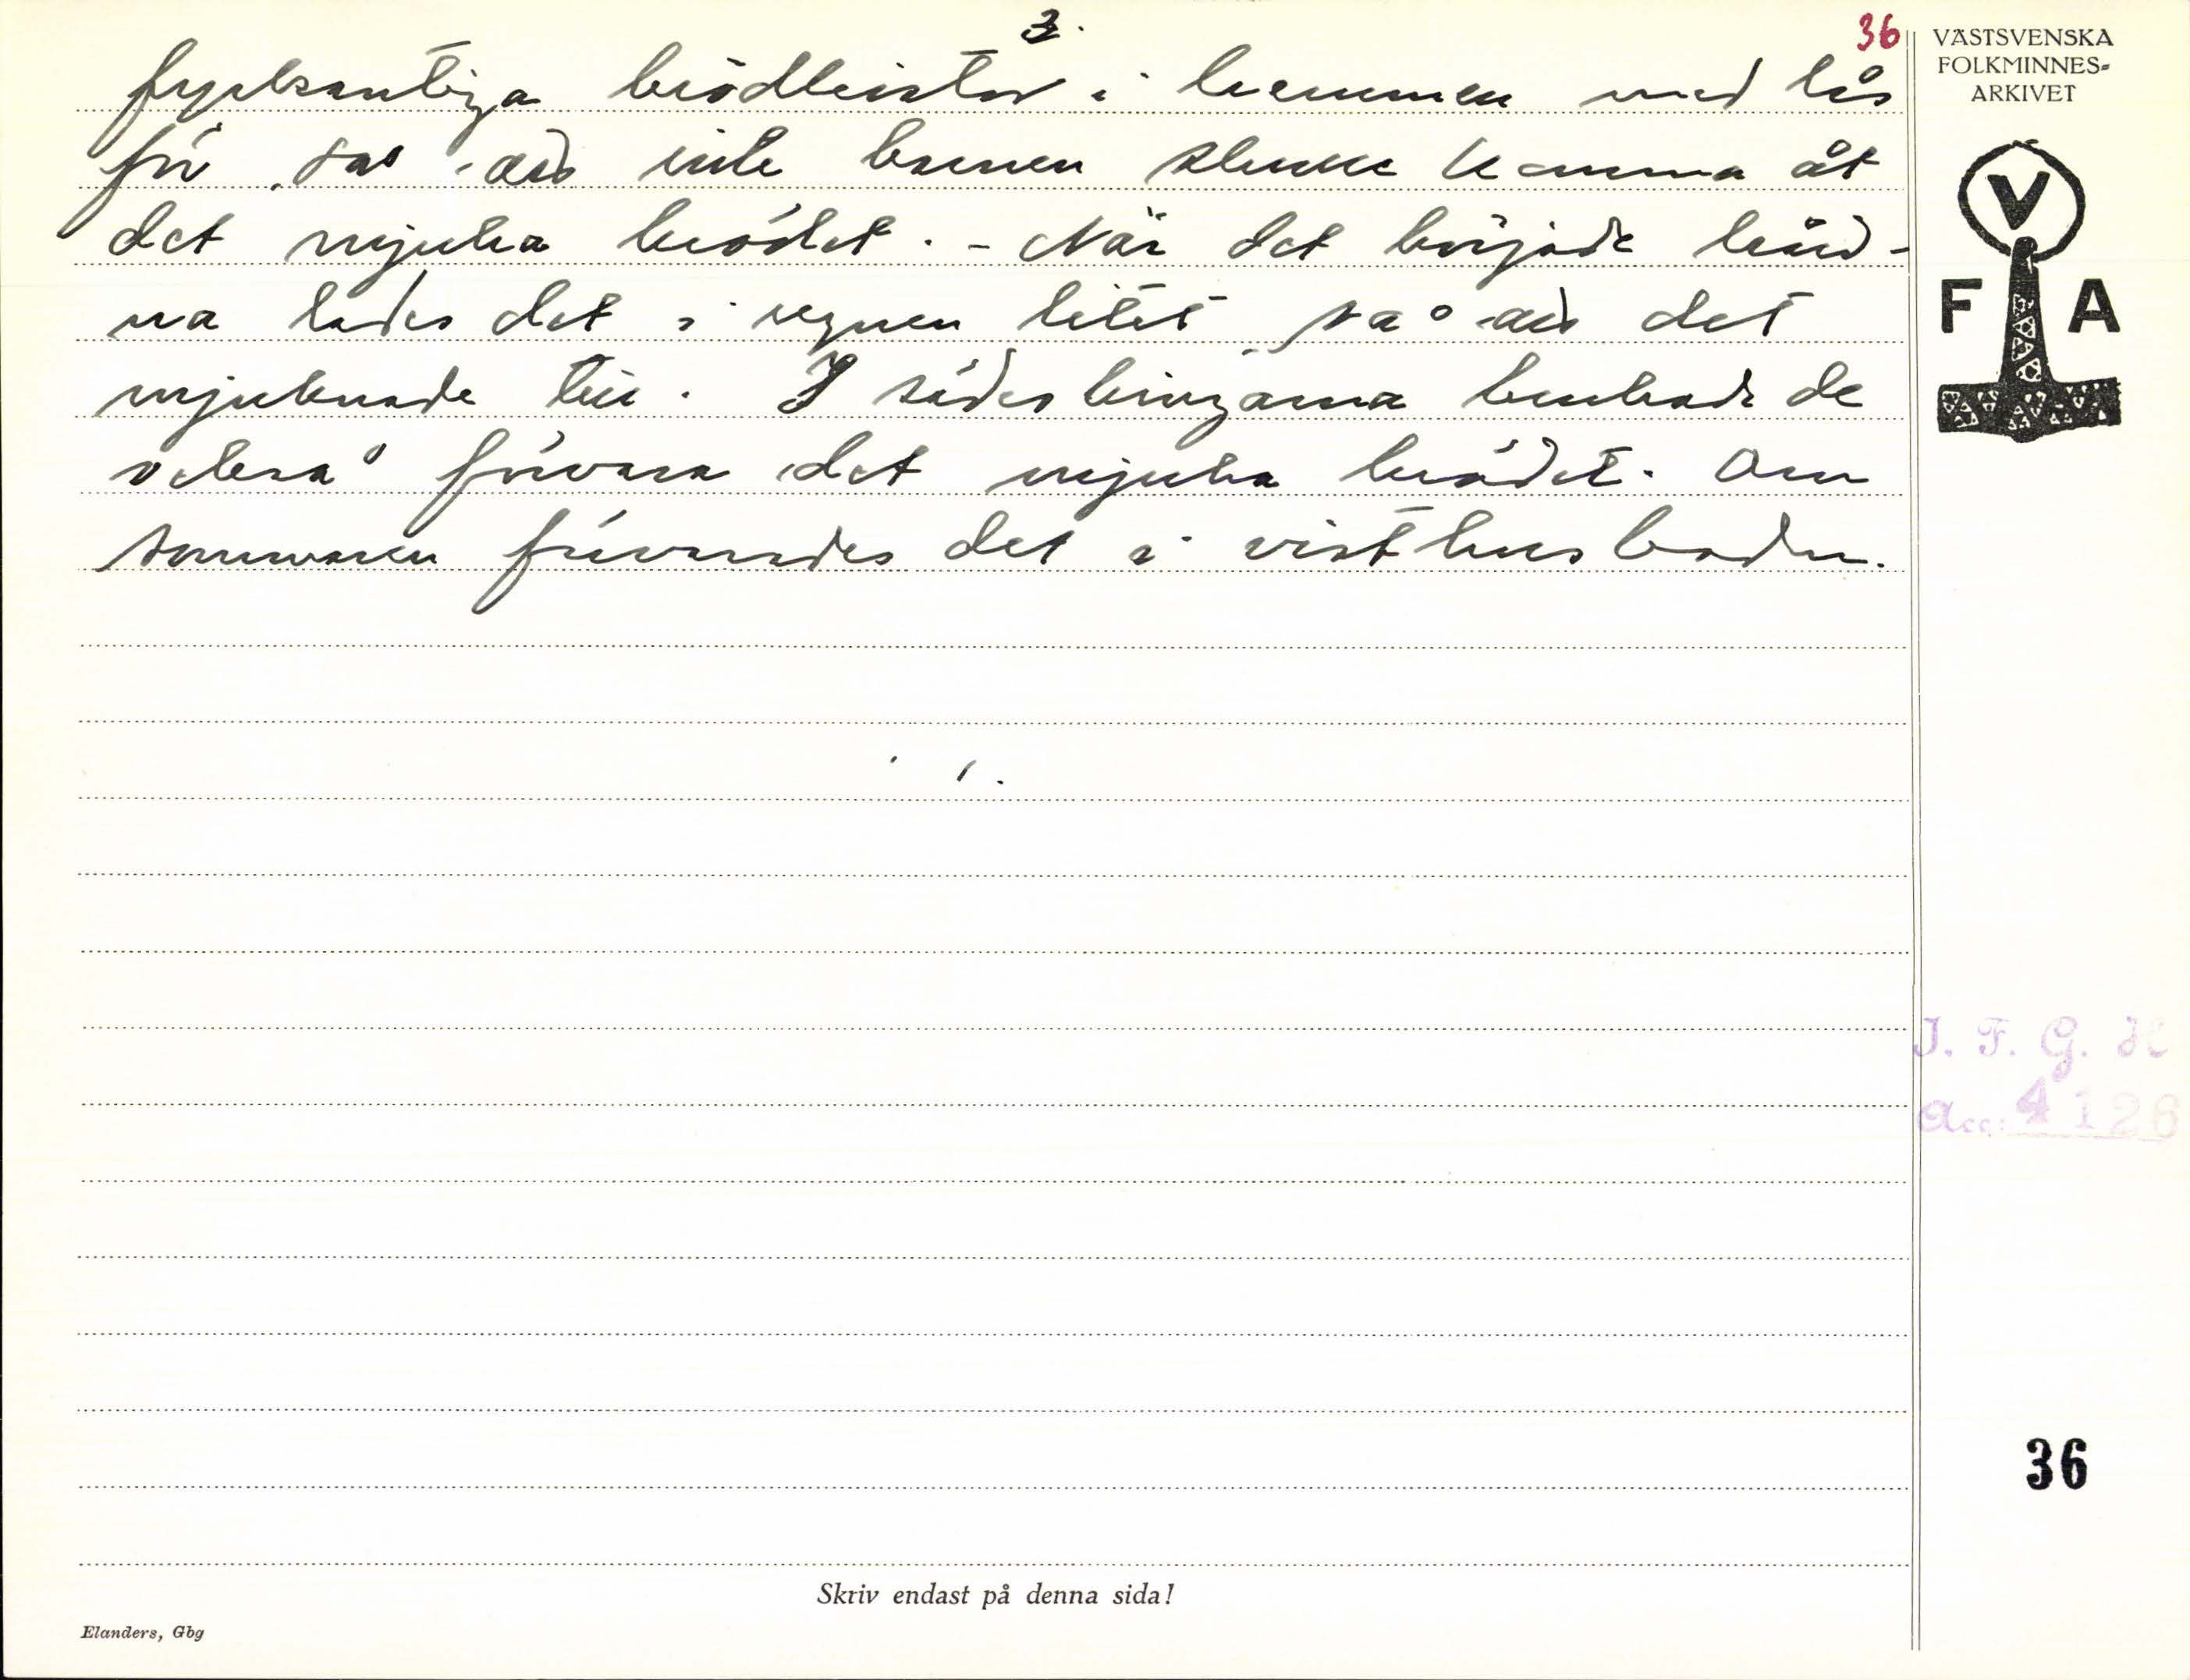 3.
36
fyrkantiga brödkistor i hemmen med lås
för så att inte barnen skulle komma åt
det mjuka brödet. - När det började hård-
na lades det i ugnen litet så att det
mjuknade till. I sädesbingarna brukade de
också förvara det mjuka brödet. Om
sommaren förvarades det i visthusboden.
VÄSTSVENSKA
FOLKMINNES-
ARKIVET
V
F A
I. F. G. H
Acc: 4126
36
Skriv endast på denna sida!
Elanders, Gbg